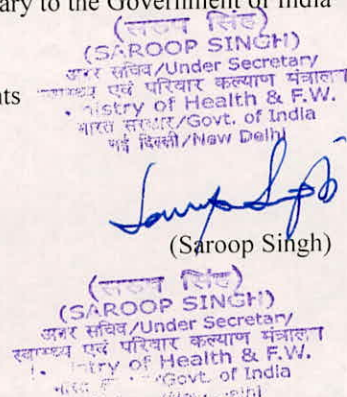 ary to the Government of India
(सरूप सिंह)
(SAROOP SINGH)
अवर सचिव/Under Secretary
स्वास्थ्य एवं परिवार कल्याण मंत्रालय
nts
istry of Health & F.W.
भारत सरकार/Govt. of India
नई दिल्ली/New Delhi
(Saroop Singh)
(सरूप सिंह)
(SAROOP SINGH)
अवर सचिव/Under Secretary
स्वास्थ्य एवं परिवार कल्याण मंत्रालय
try of Health & F.W.
भारत Govt. of India